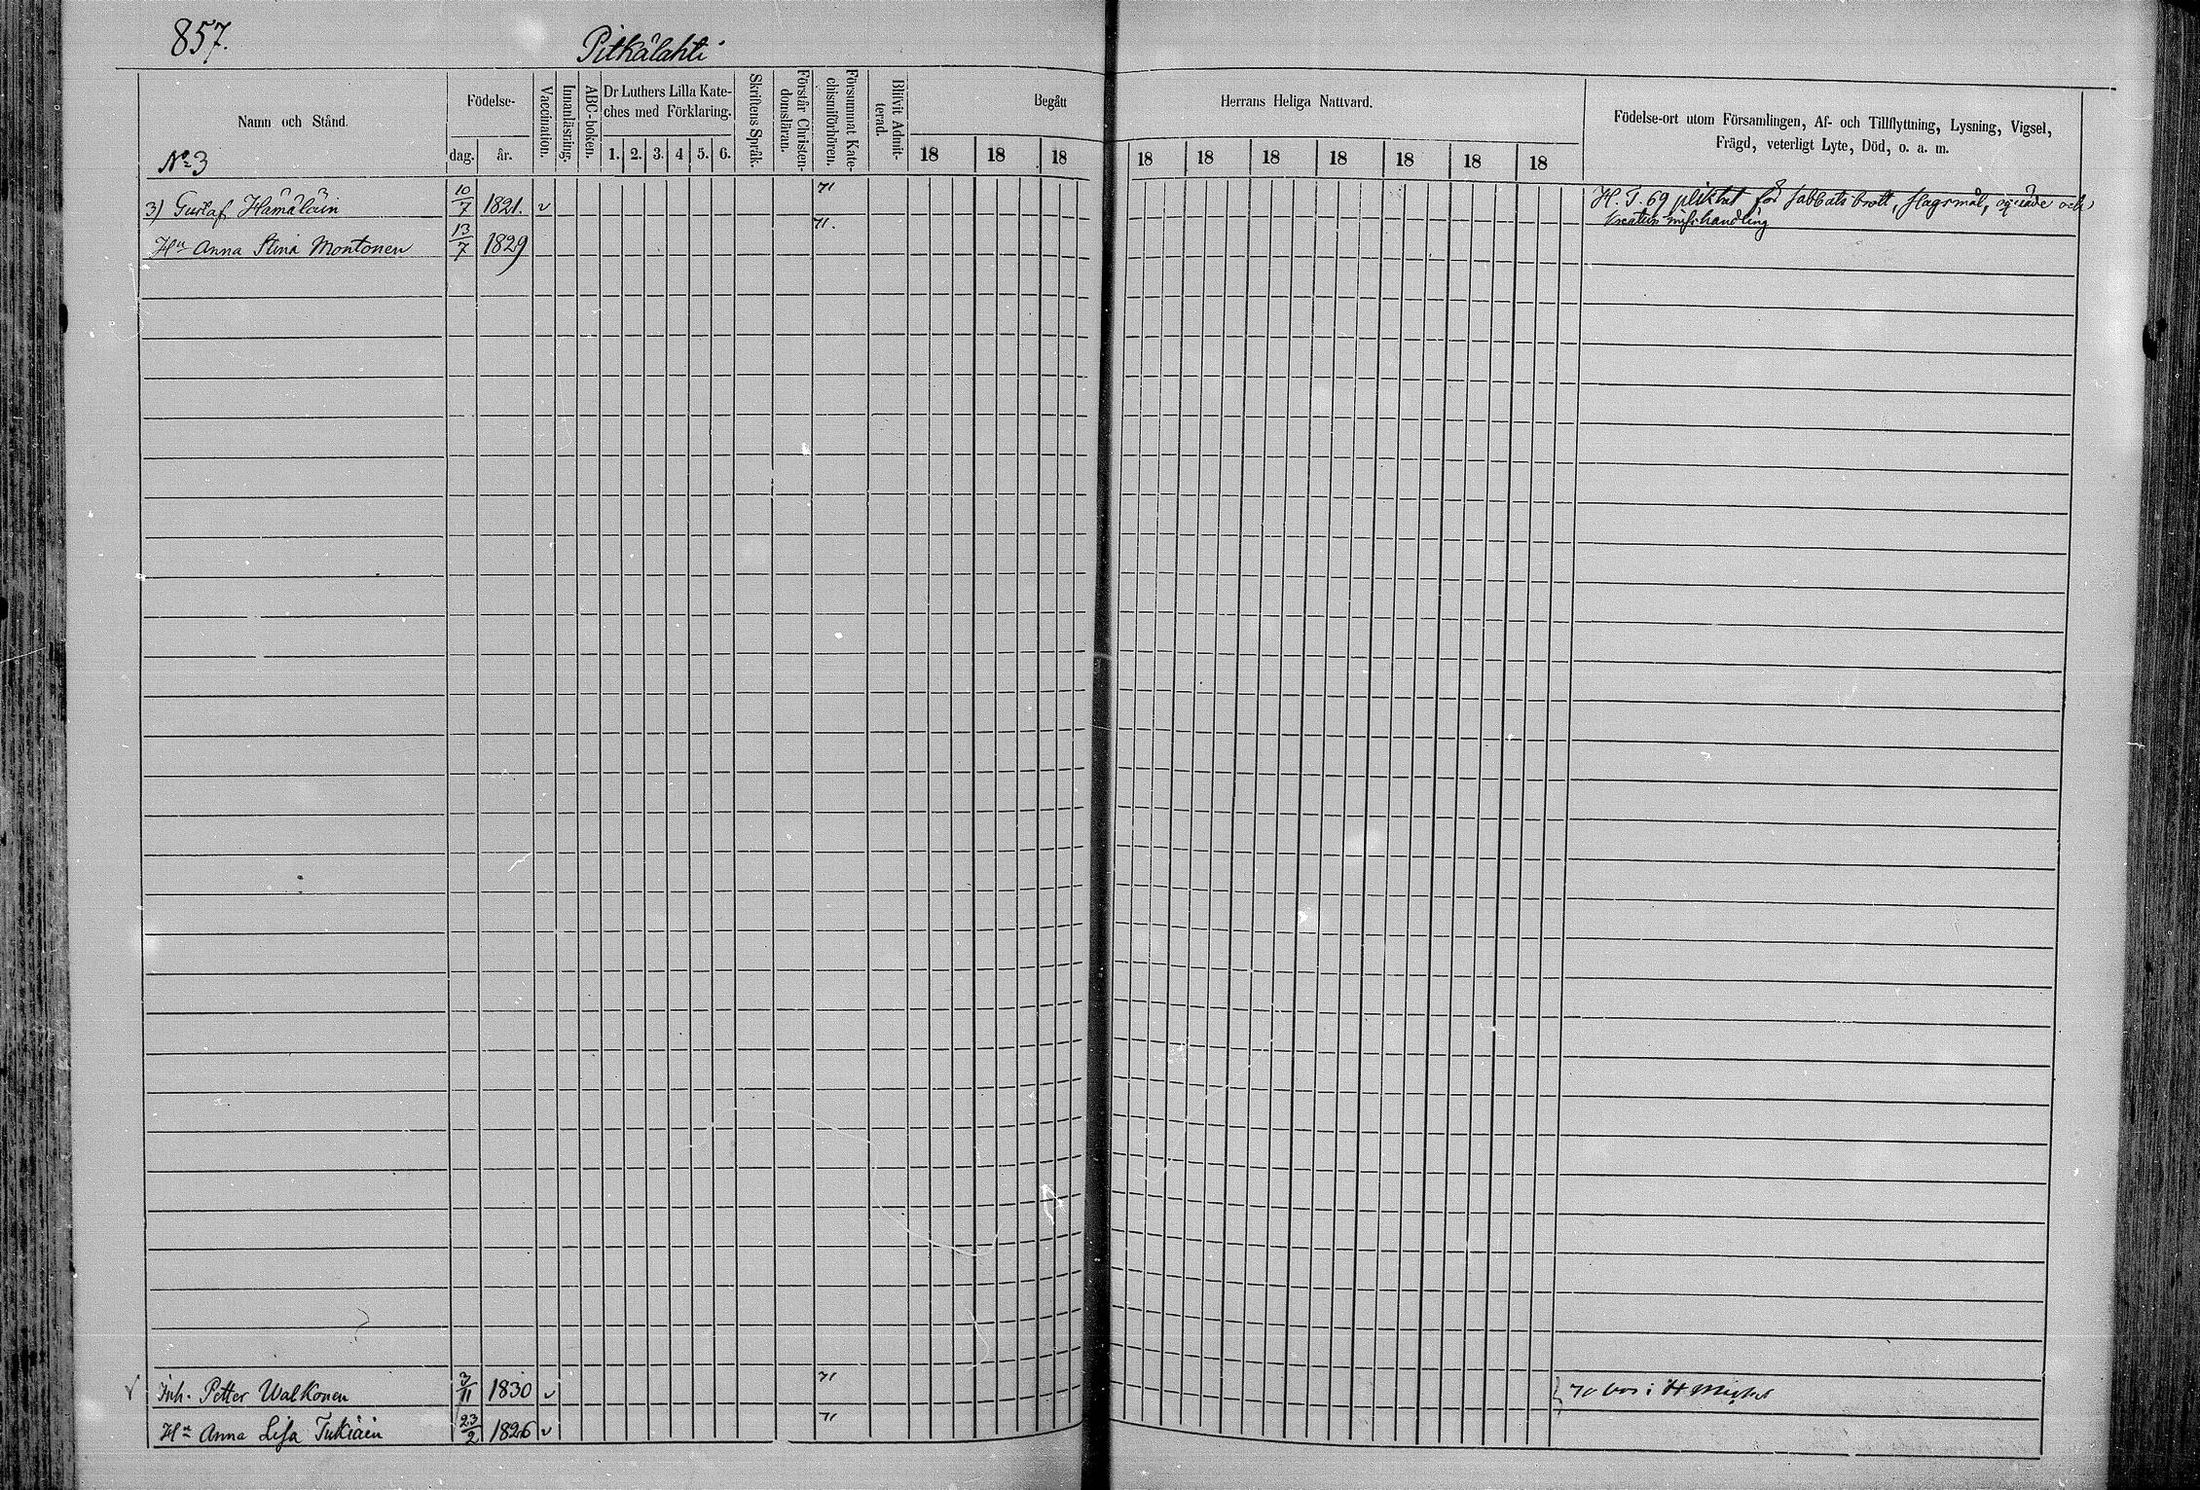 857.
Pitkälahti
Namn och Stånd.
Födelse-
dag. år.
Vaccination.
Innanläsning.
ABC-boken.
Dr Luthers Lilla Kate-
ches med Förklaring.
1. 2. 3. 4 5. 6.
Skriftens Språk.
Förstår Christen-
domsläran.
Försummat Kate-
chismiförhören.
Blifvit Admit-
terad.
Begått
18 18 18
Herrans Heliga Nattvard.
18 18 18 18 18 18 18
Födelse-ort utom Församlingen, Af- och Tillflyttning, Lysning, Vigsel,
Frägd, veterligt Lyte, Död, o. a. m.
No 3
3) Gustaf Hämäläin 10/7 1821. v 71 H. T. 69 pliktat för sabbats brott, slagsmål, och
kreatur misshandling
Hu Anna Stina Montonen 13/7 1829 71.
v Inh. Petter Walkonen 3/11 1830 v 71 70 bor i
Hu Anna Lisa Tukiäin 23/2 1826 v 71